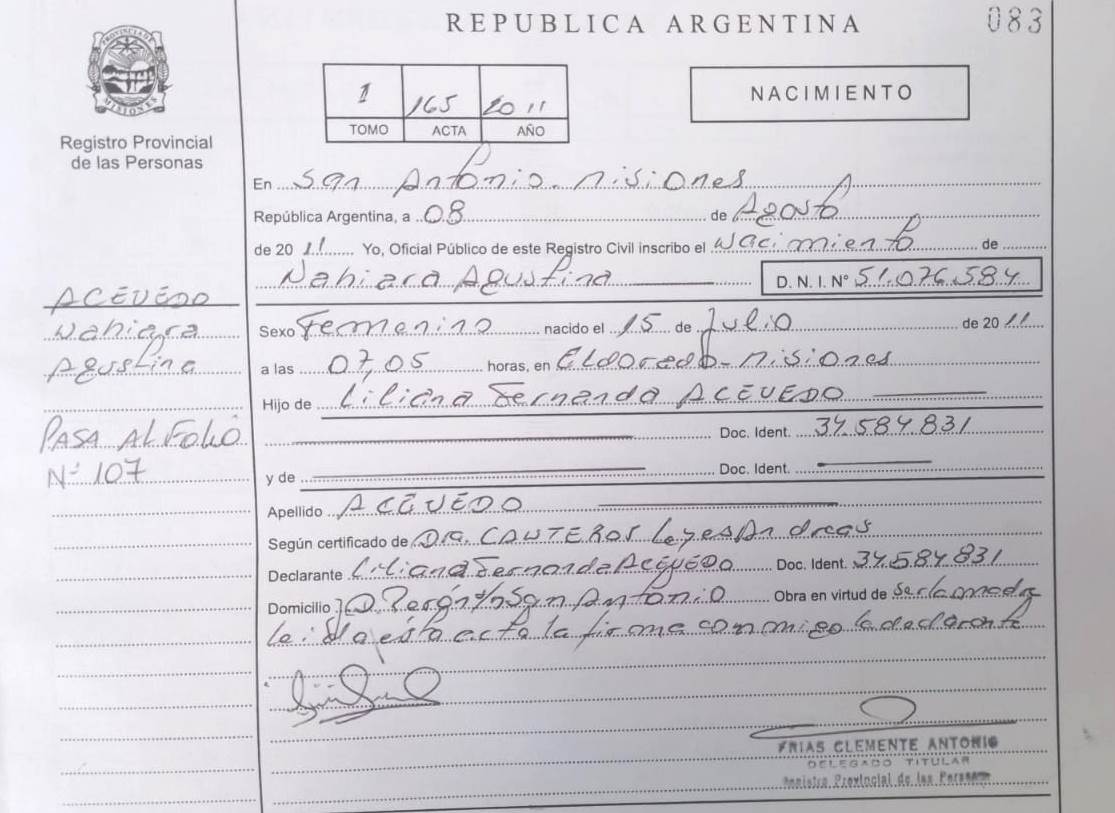 REPUBLICA ARGENTINA
083
PROVINCIA DE
MISIONES
Registro Provincial
de las Personas
1 165 2011
TOMO ACTA AÑO
NACIMIENTO
En San Antonio - Misiones
República Argentina, a 08 de Agosto
de 2011 Yo, Oficial Público de este Registro Civil inscribo el Nacimiento de
Nahiara Agustina D. N. I. Nº 51.076.584
Sexo Femenino nacido el 15 de Julio de 2011
a las 07,05 horas, en Eldorado - Misiones
Hijo de Liliana Fernanda ACEVEDO
Doc. Ident. 34.584.831
y de Doc. Ident.
Apellido ACEVEDO
Según certificado de Dra. Leyes Andreas
Declarante Liliana Fernanda Acevedo Doc. Ident. 34.584.831
Domicilio Perón s/n San Antonio Obra en virtud de ser la madre
leida esta acta la firma conmigo la declarante
ACEVEDO
Nahiara
Agustina
PASA AL FOLIO
Nº 107
FRIAS CLEMENTE ANTONIO
DELEGADO TITULAR
Registro Provincial de las Personas